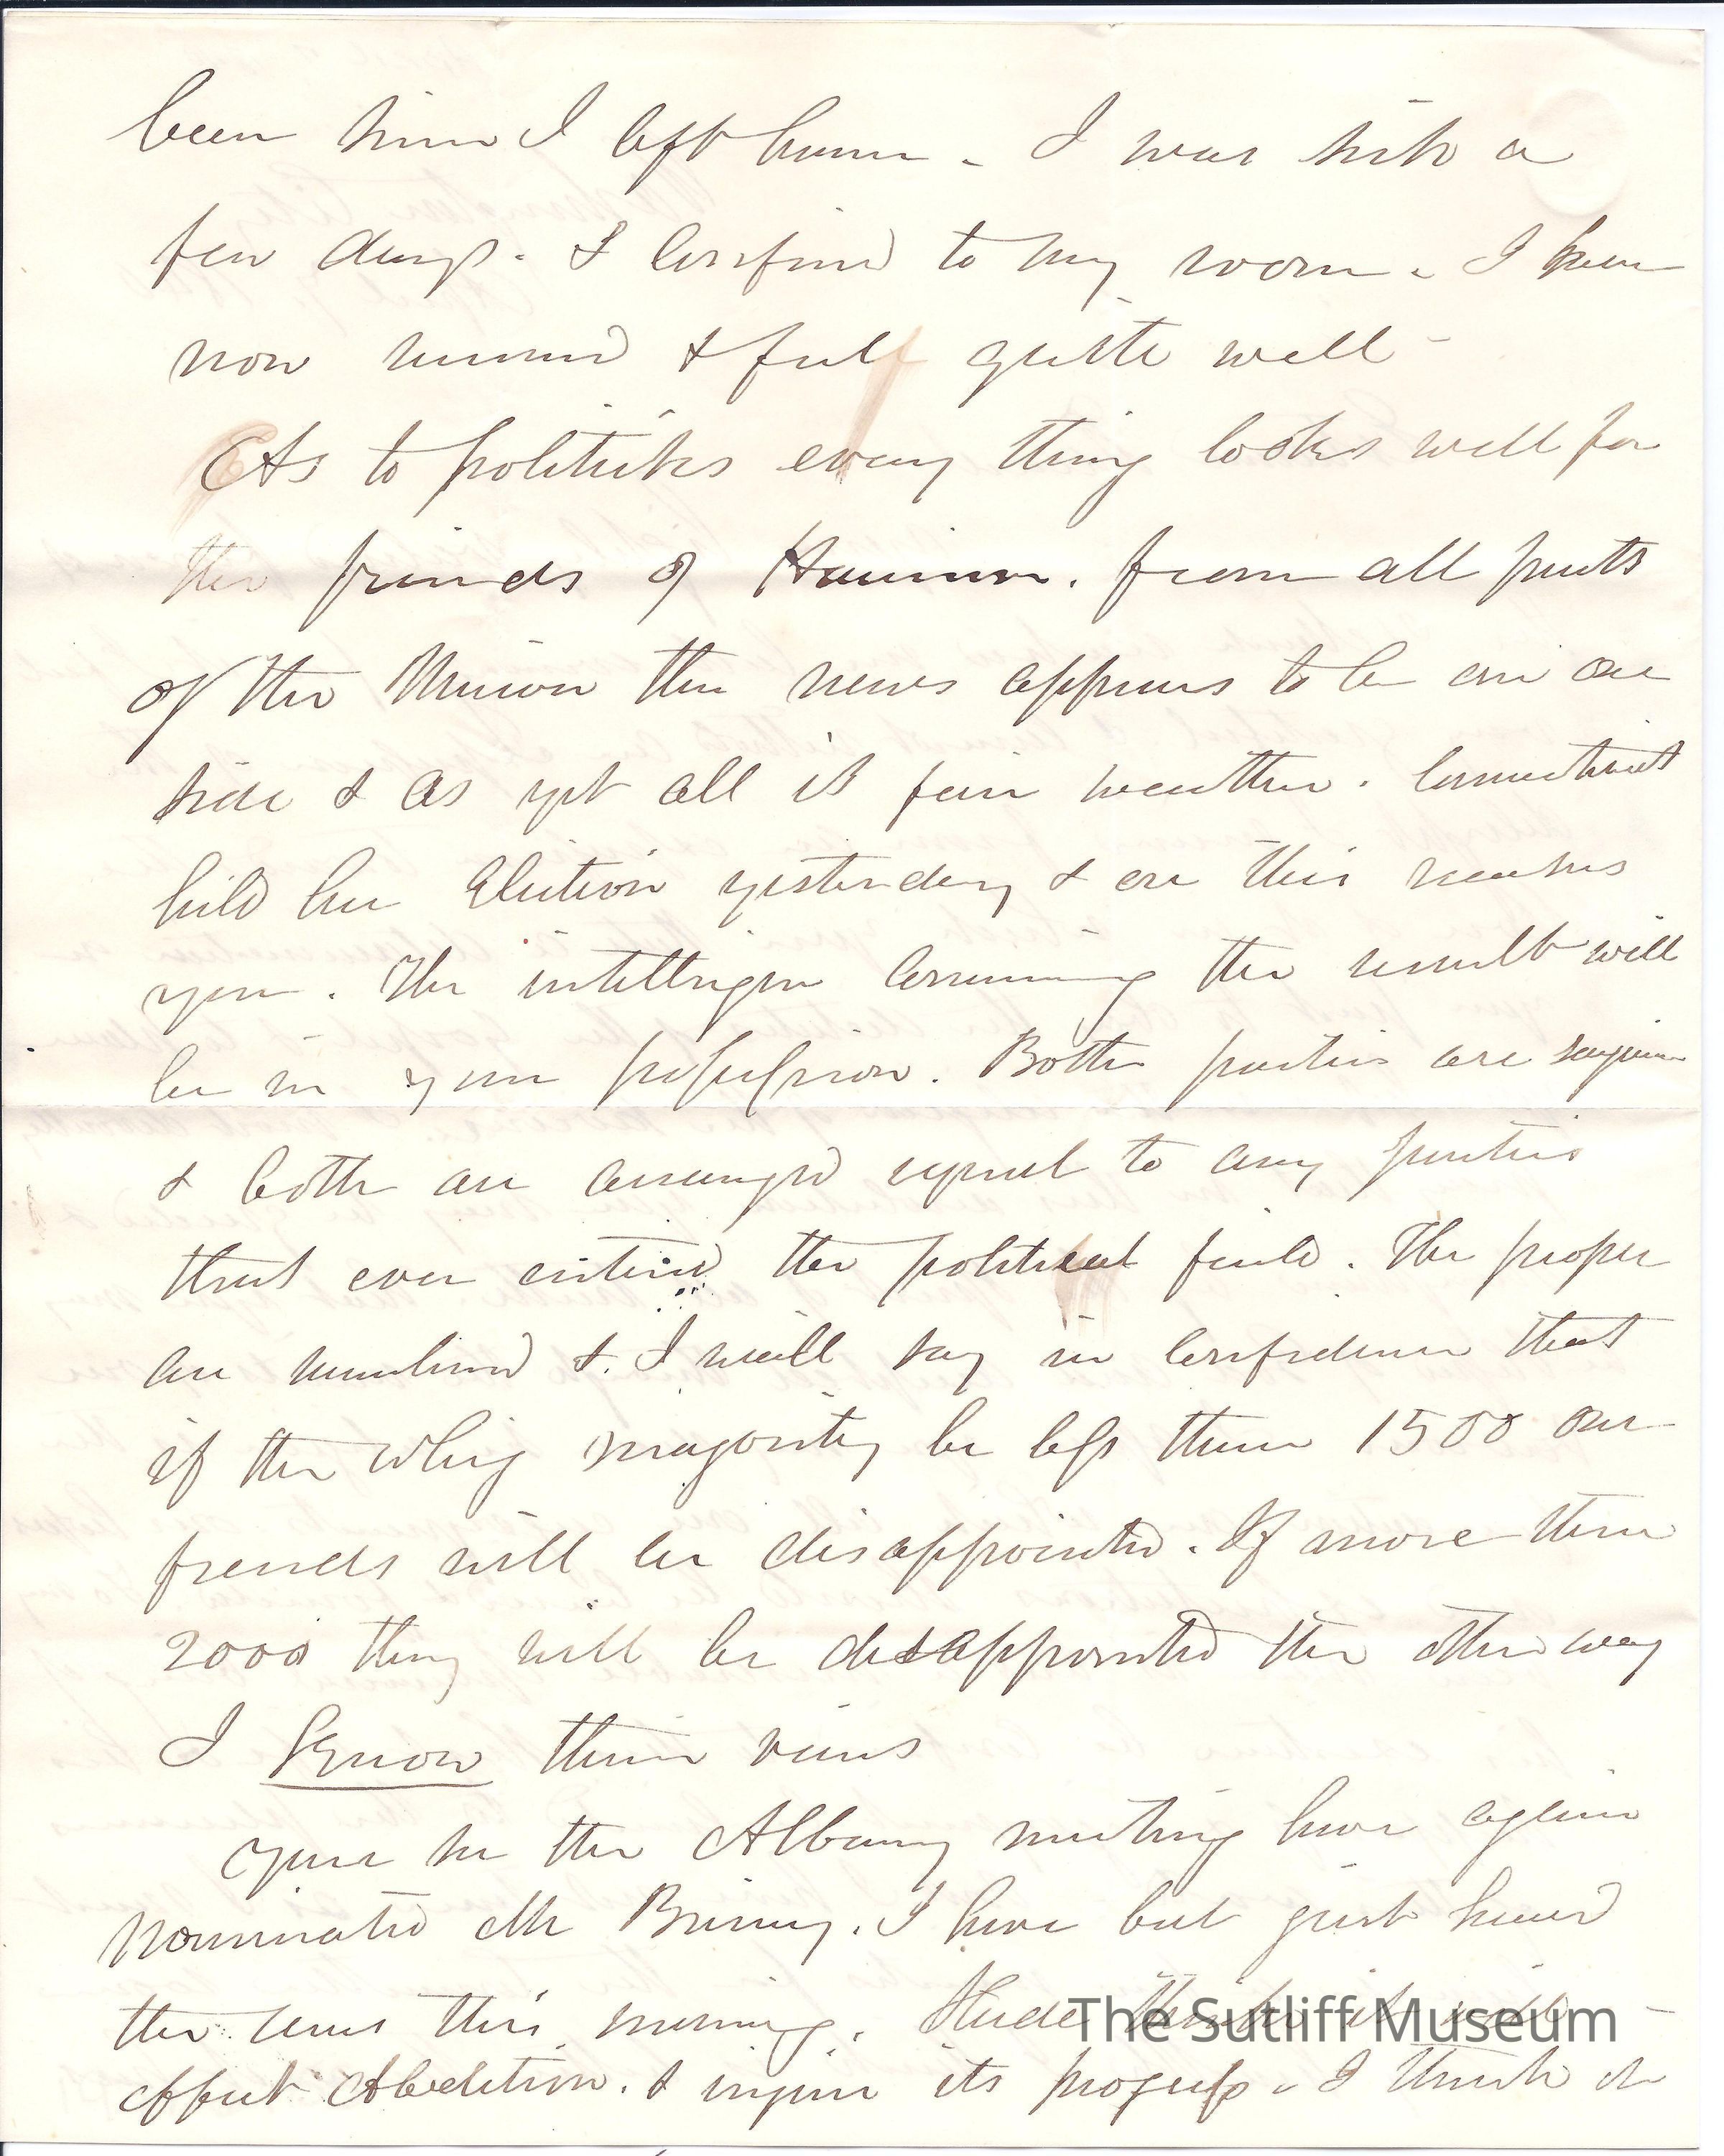 been since I left home - I was sick a
few days. & confined to my room. I have
now resumed & feel quite well -
As to politicks every thing looks well for
the friends of Harrison. from all parts
of the Union the news appears to be on one
side & as yet all is fair weather. Connecticut
held her Election yesterday & ere this reaches
you. The intelligence concerning the result will
be in your possession. Both parties are sanguine
& both are arranged equal to any parties
that ever entered the political field. The proper
are numbered &. I will say in confidence that
if the Whig majority be less than 1500 our
friends will be disappointed. If more than
2000 they will be disappointed the other way
I Know their views
You see the Albany meeting have again
nominated Mr Birney. I have but just heard
the news this morning. Slade thinks it will
effect Abolition. & injure its progress. I think it
The Sutliff Museum